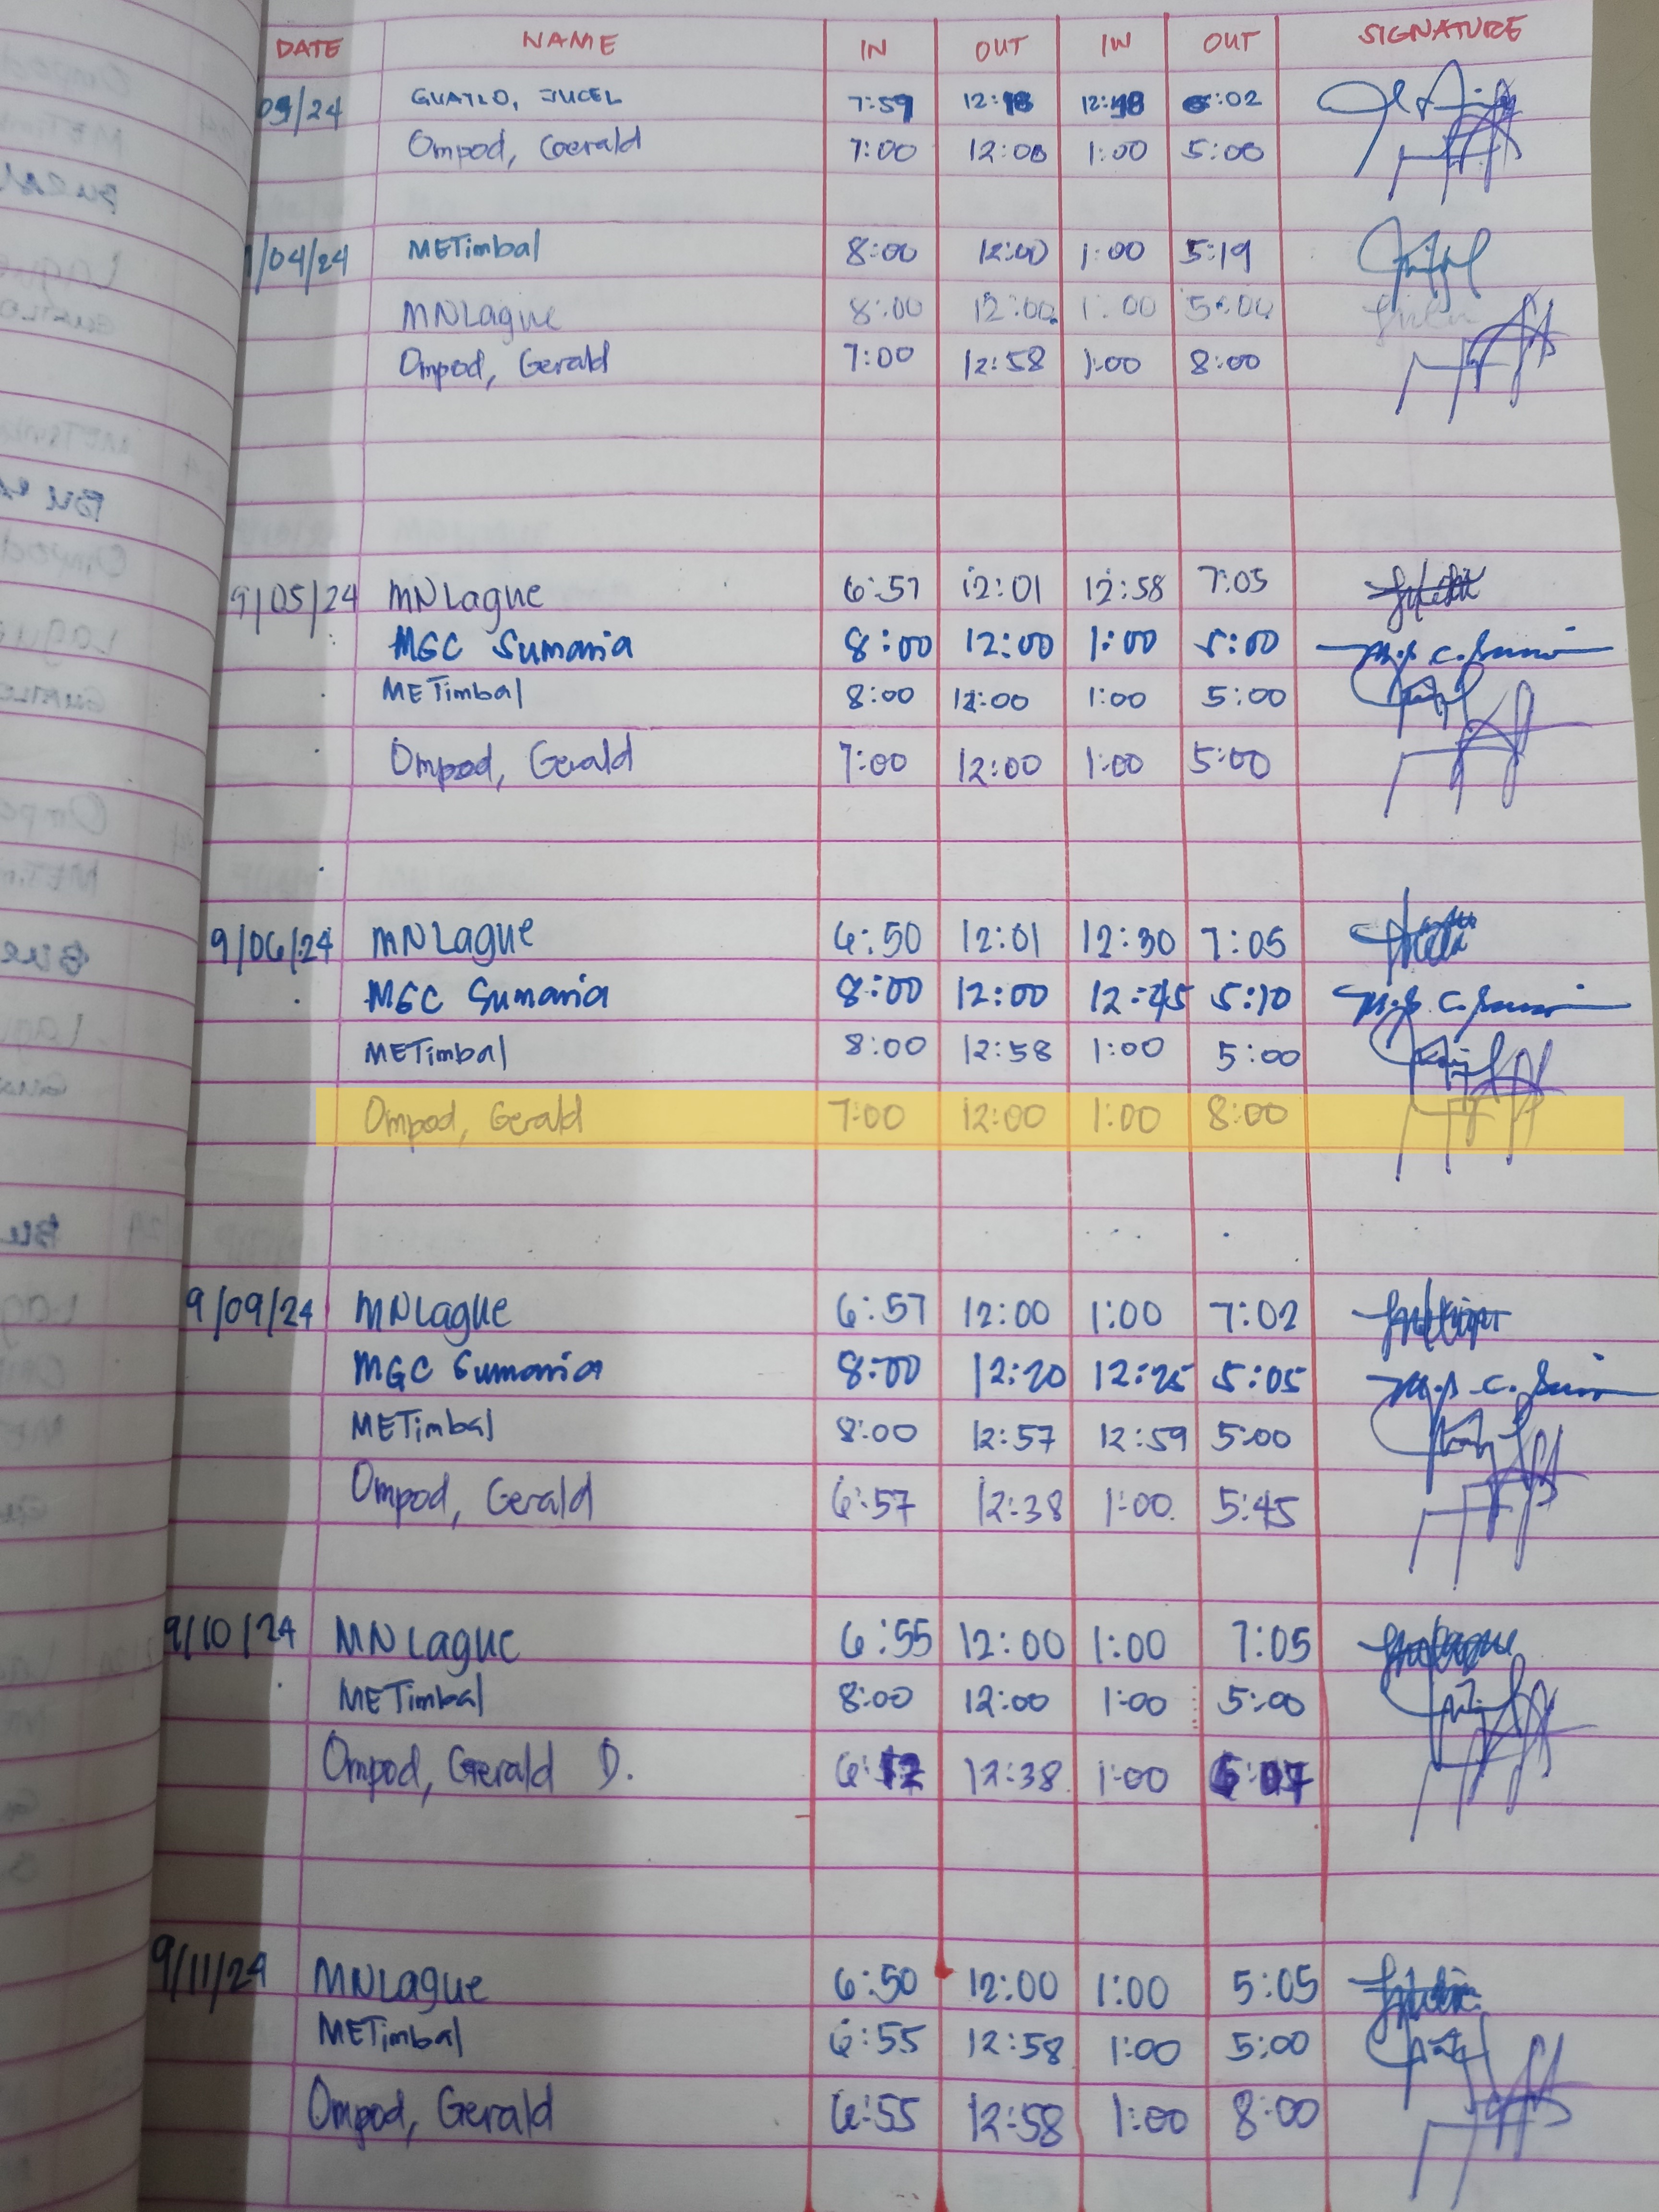 DATE NAME IN OUT IN OUT SIGNATURE
09/24 GUATLO, JUCEL 7:59 12:18 :02
Ompod, Gerald 7:00 12:00 1:00 5:00
/04/24 METimbal 8:00 12:00 1:00 5:19
MNLague 8:00 12:00 1:00 5:00
Ompod, Gerald 7:00 12:58 1:00 8:00
9/05/24 MNLague 6:57 12:01 12:58 7:05
MGC Sumania 8:00 12:00 1:00 5:00
METimbal 8:00 12:00 1:00 5:00
Ompod, Gerald 7:00 12:00 1:00 5:00
9/06/24 MNLague 6:50 12:01 12:30 7:05
MGC Sumania 8:00 12:00 12:45 5:10
METimbal 8:00 12:58 1:00 5:00
Ompod, Gerald 7:00 12:00 1:00 8:00
9/09/24 MNLague 6:57 12:00 1:00 7:02
MGC Sumania 8:00 12:20 12:25 5:05
METimbal 8:00 12:57 12:59 5:00
Ompod, Gerald 6:57 12:38 1:00 5:45
9/10/24 MNLague 6:55 12:00 1:00 7:05
METimbal 8:00 12:00 1:00 5:00
Ompod, Gerald D. 12:38 1:00
9/11/24 MNLague 6:50 12:00 1:00 5:05
METimbal 6:55 12:58 1:00 5:00
Ompod, Gerald 6:55 12:58 1:00 8:00